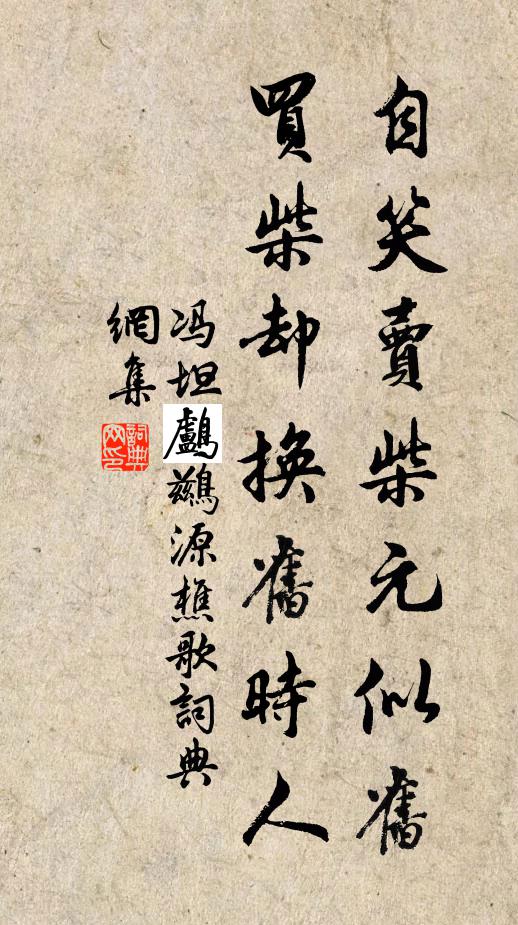 自笑賣柴元似舊
買柴却換舊時人
冯坦鸕鷀源樵歌詞典
網集
詞典网印